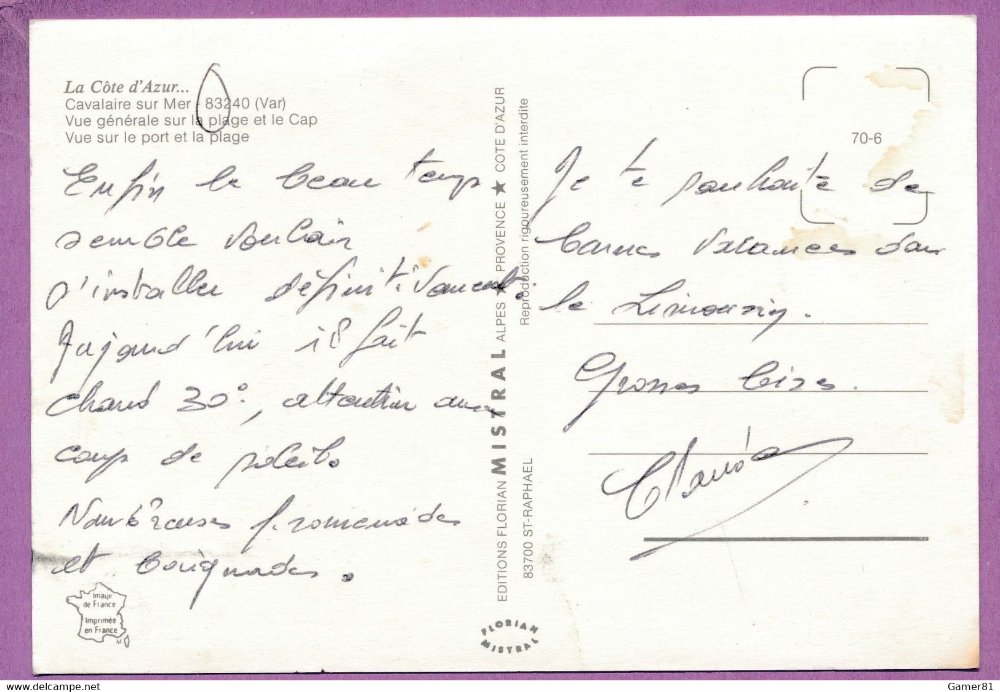 La Côte d'Azur...
Cavalaire sur Mer - 83240 (Var)
Vue générale sur la plage et le Cap
Vue sur le port et la plage
Enfin le beau temps
semble vouloir
s'installer définitivement.
Aujourd'hui il fait
chaud 30°, attention aux
coup de soleils
Nombreuses promenades
et baignades.
Image
de France
Imprimée
en France
EDITIONS FLORIAN MISTRAL ALPES ★ PROVENCE ★ COTE D'AZUR
83700 ST-RAPHAEL
Reproduction rigoureusement interdite
FLORIAN
MISTRAL
70-6
Je te souhaite de
bonnes vacances dans
le Limousin.
Grosses bises.
Gamer81